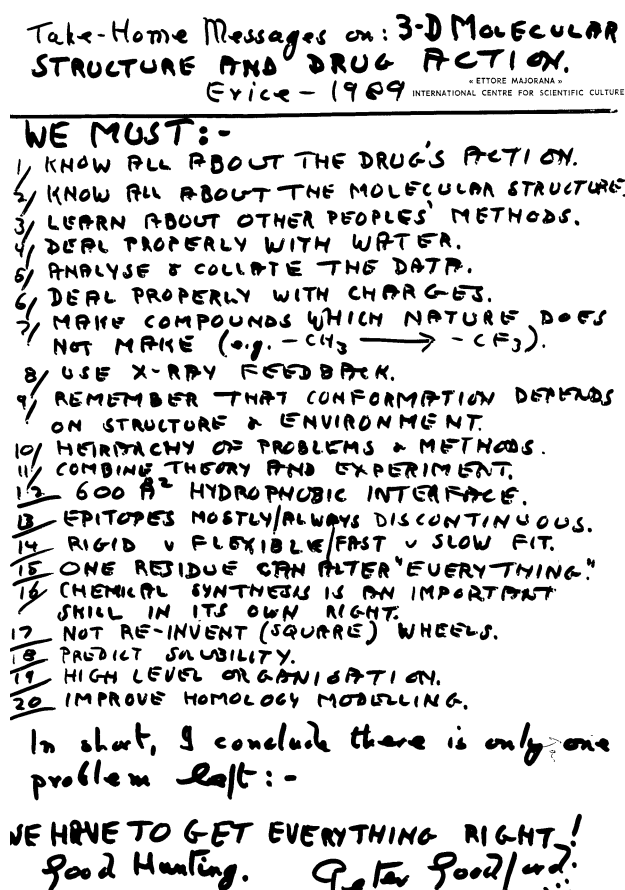 Take-Home Messages on: 3-D MOLECULAR
STRUCTURE AND DRUG ACTION.
« ETTORE MAJORANA »
Erice - 1989 INTERNATIONAL CENTRE FOR SCIENTIFIC CULTURE
WE MUST:-
1/ KNOW ALL ABOUT THE DRUG'S ACTION.
2/ KNOW ALL ABOUT THE MOLECULAR STRUCTURE.
3/ LEARN ABOUT OTHER PEOPLES' METHODS.
4/ DEAL PROPERLY WITH WATER.
5/ ANALYSE & COLLATE THE DATA.
6/ DEAL PROPERLY WITH CHARGES.
7/ MAKE COMPOUNDS WHICH NATURE DOES
NOT MAKE (e.g. -CH₃ ⟶ -CF₃).
8/ USE X-RAY FEEDBACK.
9/ REMEMBER THAT CONFORMATION DEPENDS
ON STRUCTURE & ENVIRONMENT.
10/ HEIRARCHY OF PROBLEMS & METHODS.
11/ COMBINE THEORY AND EXPERIMENT.
12 600 Å² HYDROPHOBIC INTERFACE.
13 EPITOPES MOSTLY/ALWAYS DISCONTINUOUS.
14 RIGID v FLEXIBLE/FAST v SLOW FIT.
15 ONE RESIDUE CAN ALTER "EVERYTHING."
16 CHEMICAL SYNTHESIS IS AN IMPORTANT
SKILL IN ITS OWN RIGHT.
17 NOT RE-INVENT (SQUARE) WHEELS.
18 PREDICT SOLUBILITY.
19 HIGH LEVEL ORGANISATION.
20 IMPROVE HOMOLOGY MODELLING.
In short, I conclude there is only one
problem left:-
WE HAVE TO GET EVERYTHING RIGHT!
Good Hunting. Peter Goodford.